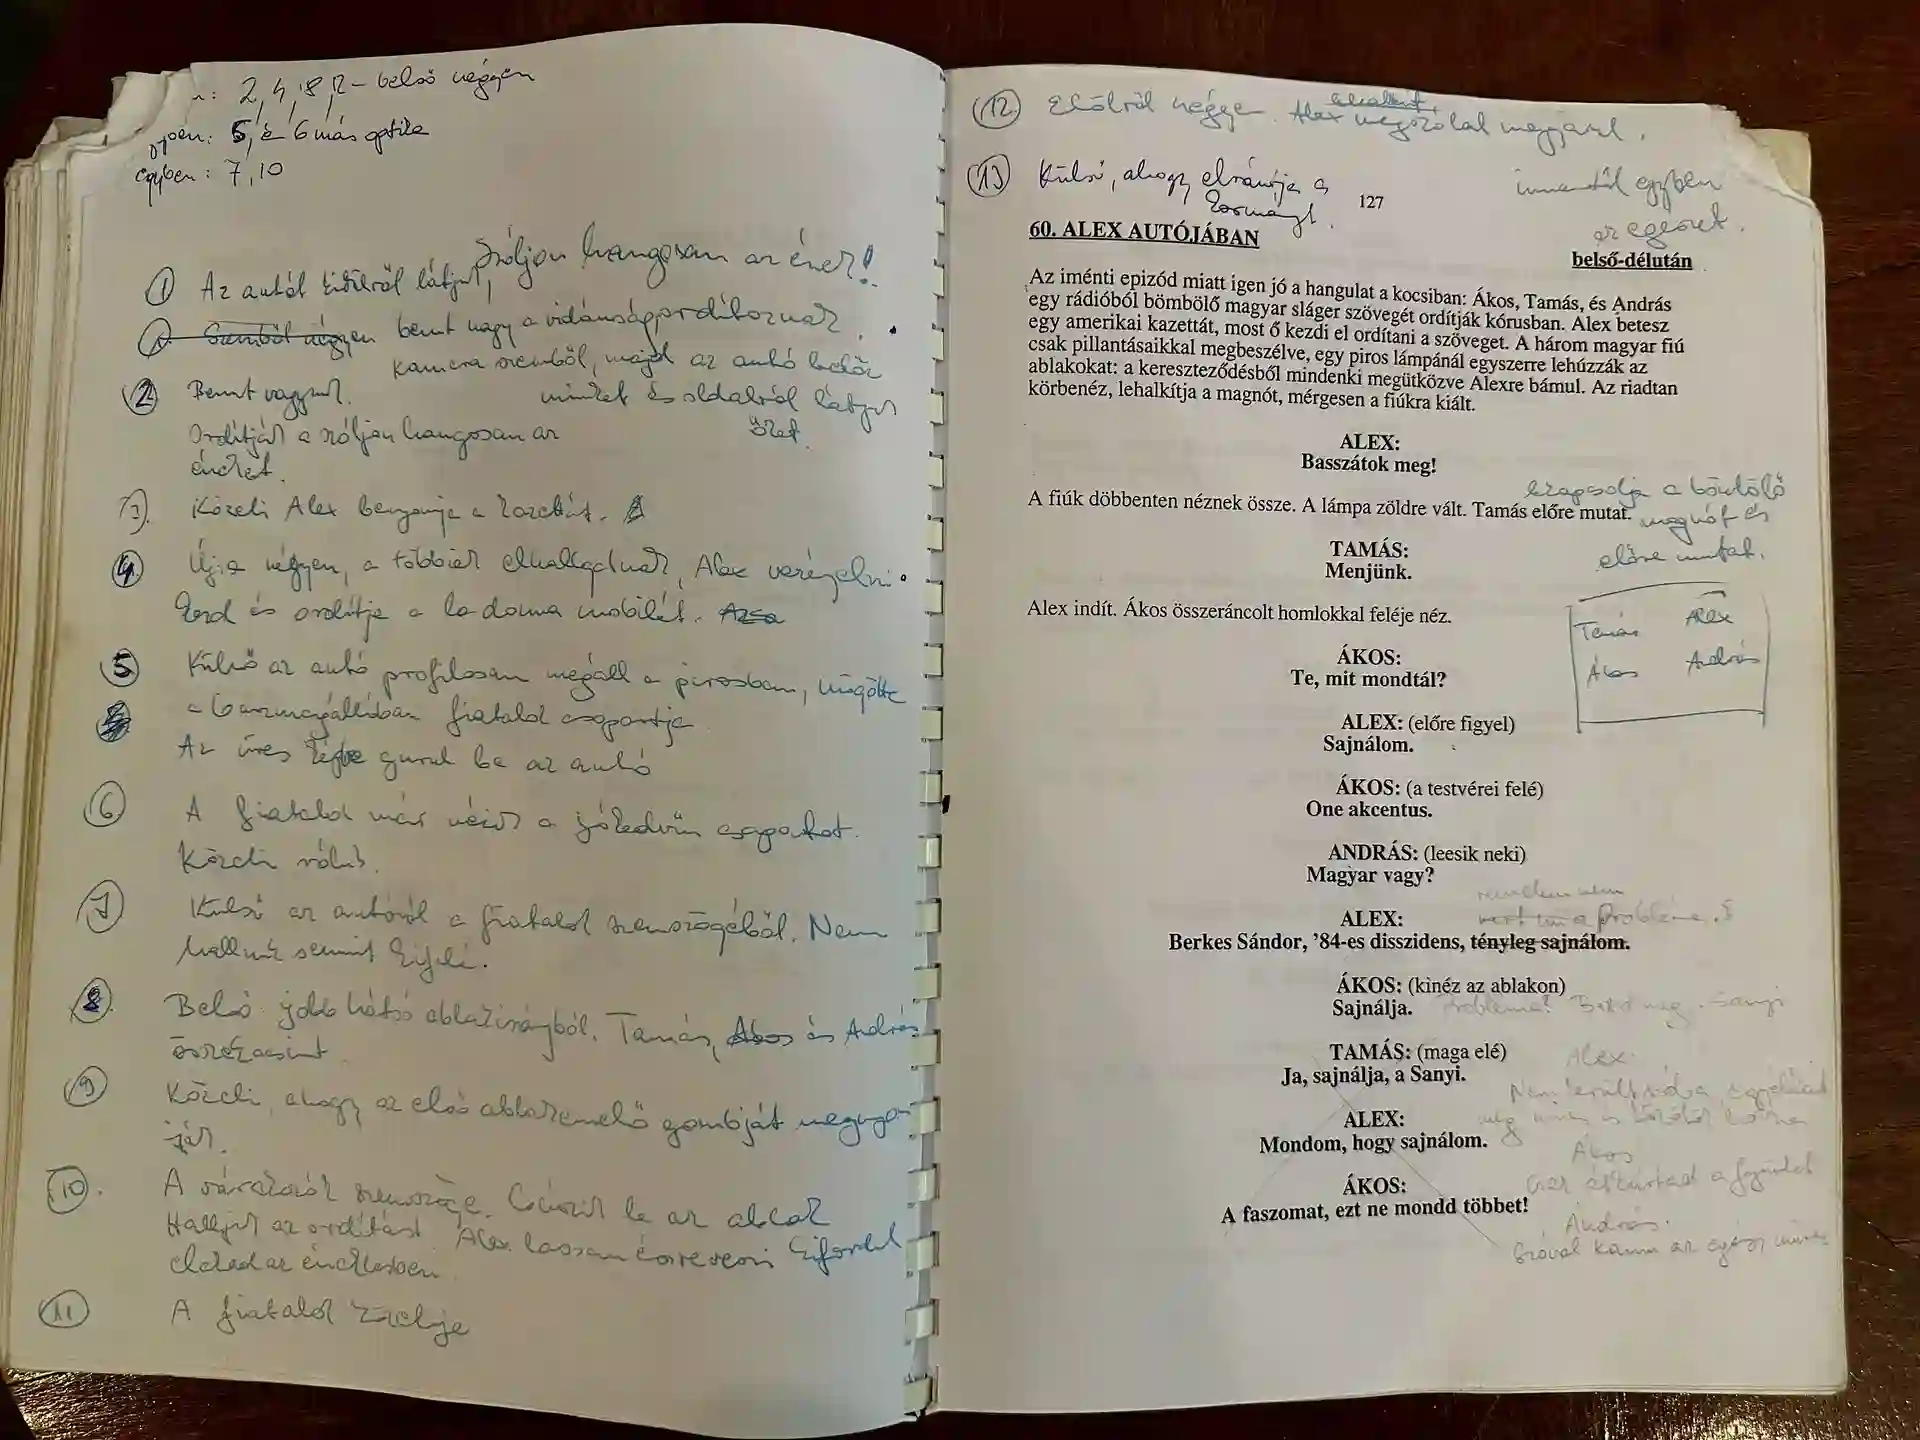 2, 4, 8, 12 – belső négyen
5, és 6 más optika
egyben: 7, 10
Szóljon hangosan az ének!
1 Az autót kívülről látjuk,
Szemből négyen bent nagy a vidámság, ordítoznak.
kamera szemből, majd az autó
2 Bent vagyunk. minket és oldalról látjuk
Ordítják a szóljon hangosan az őket.
éneket.
3. Közeli Alex benyomja a kazettát.
4. Újra négyen, a többiek elhallgatnak, Alex
kezd és ordítja a la donna mobilét.
5 Külső az autó profilosan megáll a pirosban, mögötte
a buszmegállóban fiatalok csoportja
Az üres képbe gurul be az autó
6 A fiatalok már nézik a jókedvű csapatot.
Közeli róluk.
7 Külső az autóról a fiatalok szemszögéből. Nem
hallunk semmit kifelé.
8. Belső jobb hátsó ablakirányból. Tamás, Ákos és András
összekacsint.
9 Közeli, ahogy az első ablakemelő gombját megnyom-
ják.
10. A szemszöge. le az ablak
Halljuk az ordítást. Alex lassan észreveszi
elakad az éneklésben
11 A fiatalok közelije
12. Elölről négyen. Alex megszólal magyarul.
13 Külső, ahogy elrántja a
kormányt.
127
innentől egyben
az egészet.
60. ALEX AUTÓJÁBAN
belső-délután
Az iménti epizód miatt igen jó a hangulat a kocsiban: Ákos, Tamás, és András
egy rádióból bömbölő magyar sláger szövegét ordítják kórusban. Alex betesz
egy amerikai kazettát, most ő kezdi el ordítani a szöveget. A három magyar fiú
csak pillantásaikkal megbeszélve, egy piros lámpánál egyszerre lehúzzák az
ablakokat: a kereszteződésből mindenki megütközve Alexre bámul. Az riadtan
körbenéz, lehalkítja a magnót, mérgesen a fiúkra kiált.
ALEX:
Basszátok meg!
kikapcsolja a bömbölő
A fiúk döbbenten néznek össze. A lámpa zöldre vált. Tamás előre mutat. magnót és
előre mutat.
TAMÁS:
Menjünk.
Alex indít. Ákos összeráncolt homlokkal feléje néz.
Tamás Alex
Ákos András
ÁKOS:
Te, mit mondtál?
ALEX: (előre figyel)
Sajnálom.
ÁKOS: (a testvérei felé)
One akcentus.
ANDRÁS: (leesik neki)
Magyar vagy?
ALEX:
probléma.
Berkes Sándor, ’84-es disszidens, tényleg sajnálom.
ÁKOS: (kinéz az ablakon)
Sajnálja. Probléma? Sanyi
TAMÁS: (maga elé)
Ja, sajnálja, a Sanyi.
Alex.
Nem került szóba
ALEX:
Mondom, hogy sajnálom.
Ákos
ÁKOS:
A faszomat, ezt ne mondd többet!
András.
Szóval kamu az egész